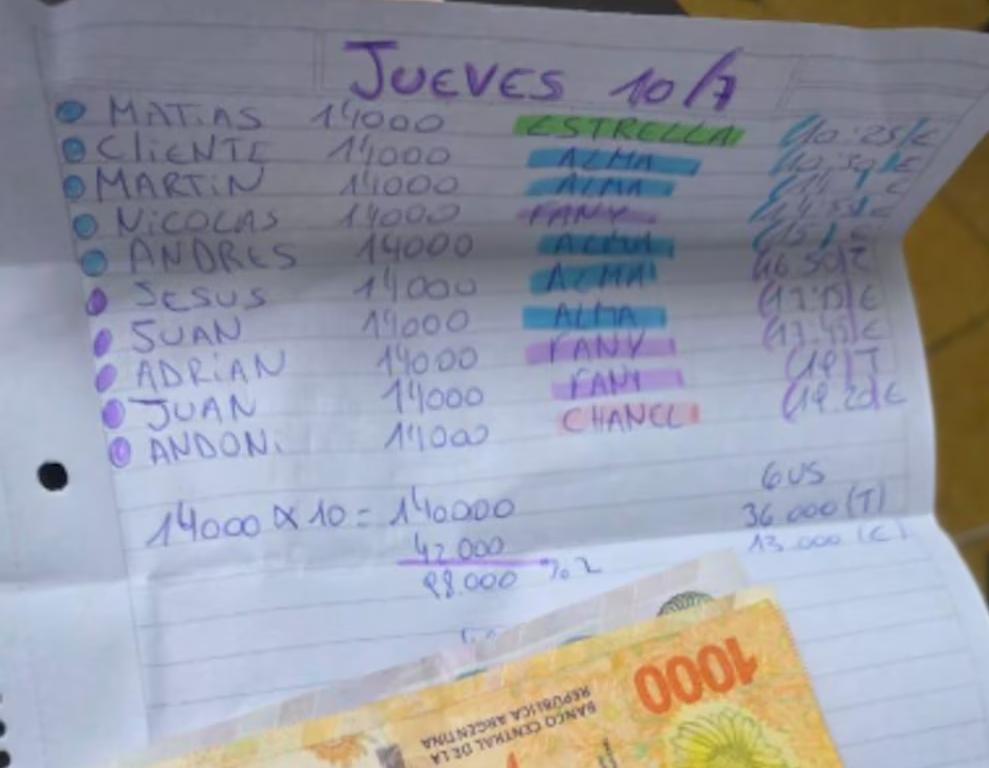 JUEVES 10/7
MATIAS 14000 ESTRELLA (10:25/E
CLIENTE 14000 ALMA
MARTIN 14000 ALMA
NICOLAS 14000 FANY
ANDRES 14000 ALMA
JESUS 14000 ALMA (16 50)T
JUAN 14000 ALMA (17:15)E
ADRIAN 14000 FANY (17:45)E
JUAN 14000 FANY (19)T
ANDONI 14000 CHANEL (19.20)E
14000 X 10 = 140.000
42.000
98.000 %2
GUS
36 000 (T)
13.000 (E)
1000
BANCO CENTRAL DE LA
REPÚBLICA ARGENTINA